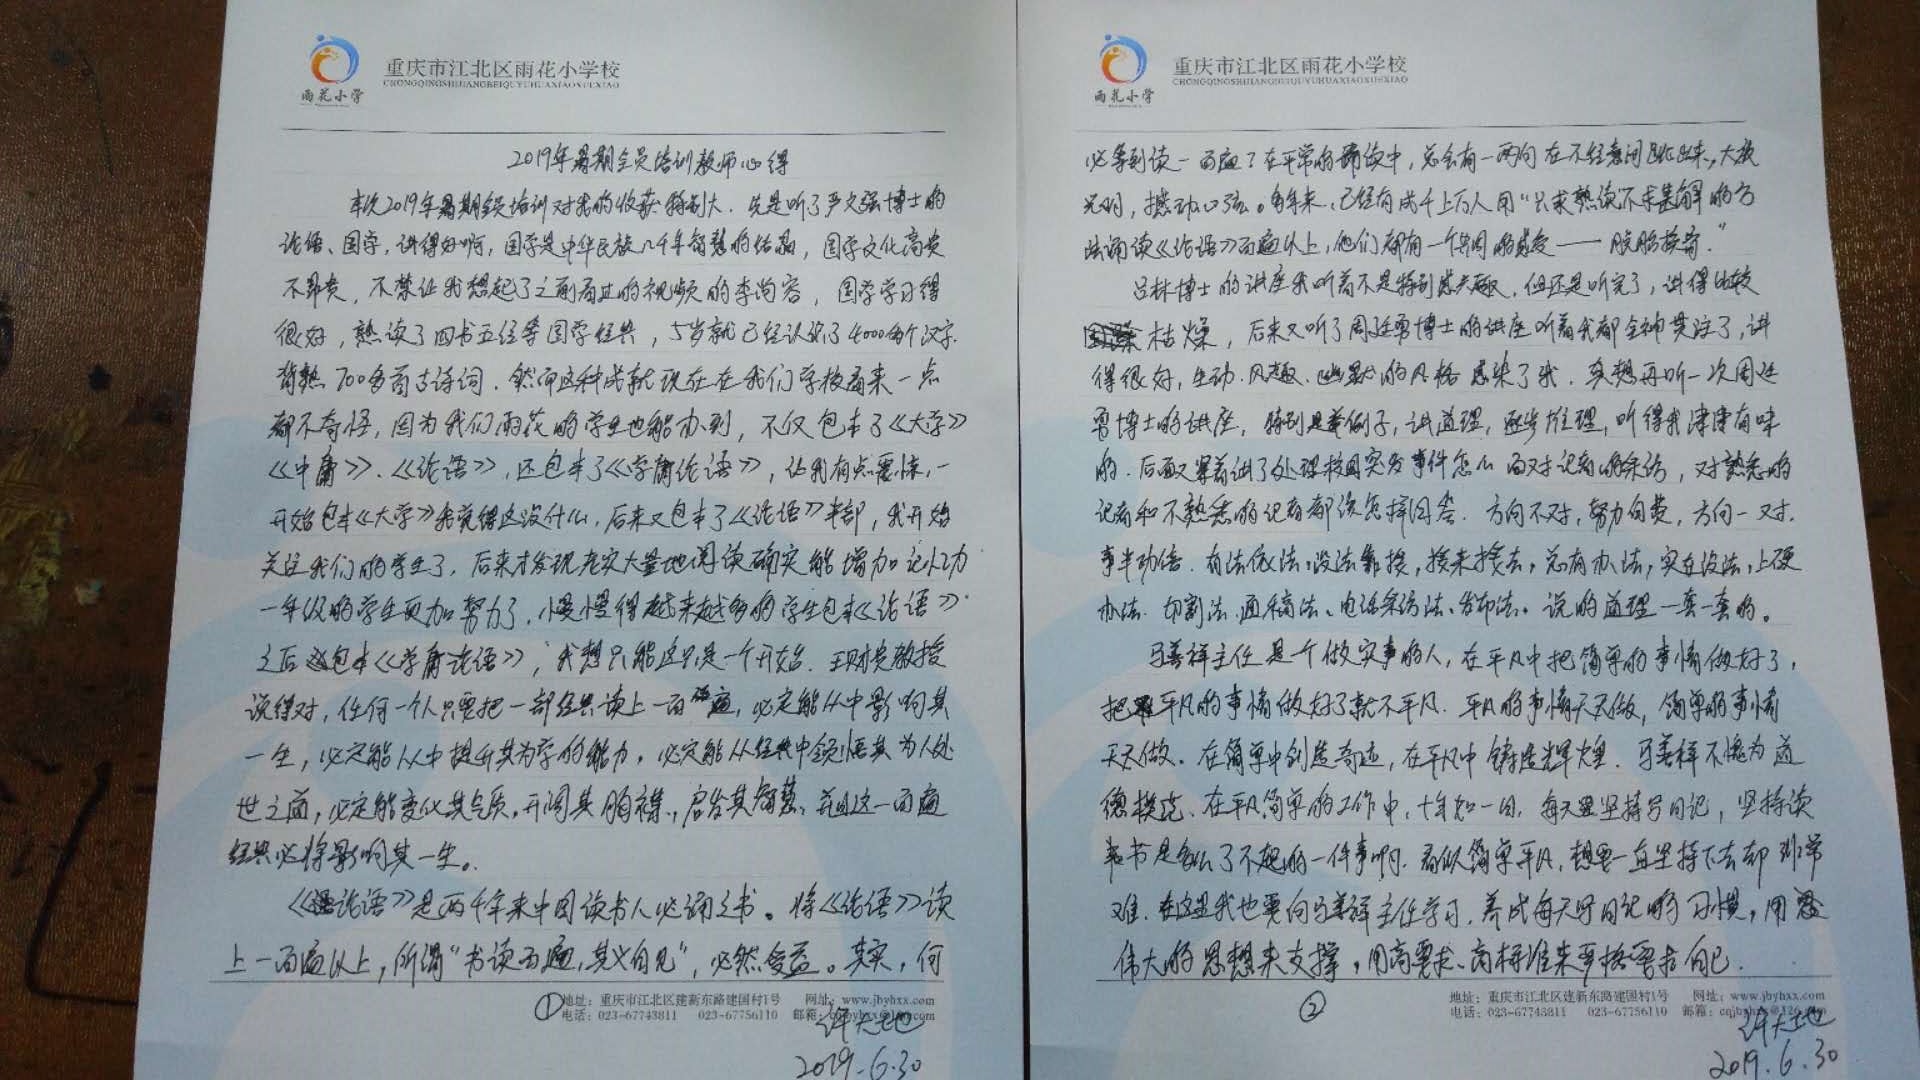 雨花小学
重庆市江北区雨花小学校
CHONGQINGSHIJIANGBEIQUYUHUAXIAOXUEXIAO
2019年暑期全员培训教师心得
本次2019年暑期全员培训对我的收获特别大,先是听了严文强博士的
论语、国学,讲得好啊,国学是中华民族几千年智慧的结晶,国学文化高贵
不昂贵,不禁让我想起了之前看过的视频的李尚容,国学学习得
很好,熟读了四书五经等国学经典,5岁就已经认识了4000多个汉字.
背熟700多首古诗词.然而这种成就现在在我们学校看来一点
都不奇怪,因为我们雨花的学生也能办到,不仅包本了《大学》
《中庸》、《论语》,还包本了《学庸论语》,让我有点震惊,一
开始包本《大学》我觉得这没什么,后来又包本了《论语》半部,我开始
关注我们的学生了,后来才发现老实大量地阅读确实能增加记忆力
一年级的学生更加努力了,慢慢得越来越多的学生包本《论语》
之后包本《学庸论语》,我想只能这只是一个开始.王财贵教授
说得对,任何一个人只要把一部经典读上一百遍,必定能从中影响其
一生,必定能从中提升其为学的能力,必定能从经典中领悟其为人处
世之道,必定能变化其气质,开阔其胸襟,启发其智慧,并且这一百遍
经典必将影响其一生。
《论语》是两千年来中国读书人必诵之书。将《论语》读
上一百遍以上,所谓“书读百遍,其义自见”,必然受益。其实,何
①
地址:重庆市江北区建新东路建国村1号 网址:www.jbyhxx.com
电话:023-67743811 023-67756110 邮箱:
许大地
2019.6.30
雨花小学
重庆市江北区雨花小学校
CHONGQINGSHIJIANGBEIQUYUHUAXIAOXUEXIAO
必等到读一百遍?在平常的诵读中,总会有一两句在不经意间跳出来,大放
光明,撼动心弦。多年来,已经有成千上万人用“只求熟读不求甚解的方
法诵读《论语》百遍以上,他们都有一个共同的感受——脱胎换骨.”
吕林博士的讲座我听着不是特别感兴趣,但还是听完了,讲得比较
枯燥,后来又听了周廷勇博士的讲座听着我都全神贯注了,讲
得很好,生动.风趣.幽默的风格感染了我.真想再听一次周廷
勇博士的讲座,特别是举例子,讲道理,逐步推理,听得我津津有味
的.后面又穿着讲了处理校园突发事件怎么面对记者的采访,对熟悉的
记者和不熟悉的记者都该怎样回答.方向不对,努力白费,方向一对.
事半功倍.有法依法,没法靠挨,挨来挨去,总有办法,实在没法,上硬
办法.切割法、通稿法、电话采访法、发布法。说的道理一套一套的。
马善祥主任是个做实事的人,在平凡中把简单的事情做好了,
把平凡的事情做好了就不平凡.平凡的事情天天做,简单的事情
天天做.在简单中创造奇迹,在平凡中铸造辉煌.马善祥不愧为道
德模范、在平凡简单的工作中,十年如一日,每天坚持写日记,坚持读
书是多么了不起的一件事啊.看似简单平凡,想要一直坚持下去却非常
难.在这里我也要向马善祥主任学习,养成每天写日记的习惯,用
伟大的思想来支撑,用高要求、高标准来严格要求自己.
②
地址:重庆市江北区建新东路建国村1号 网址:www.jbyhxx.com
电话:023-67743811 023-67756110 邮箱:
许大地
2019.6.30